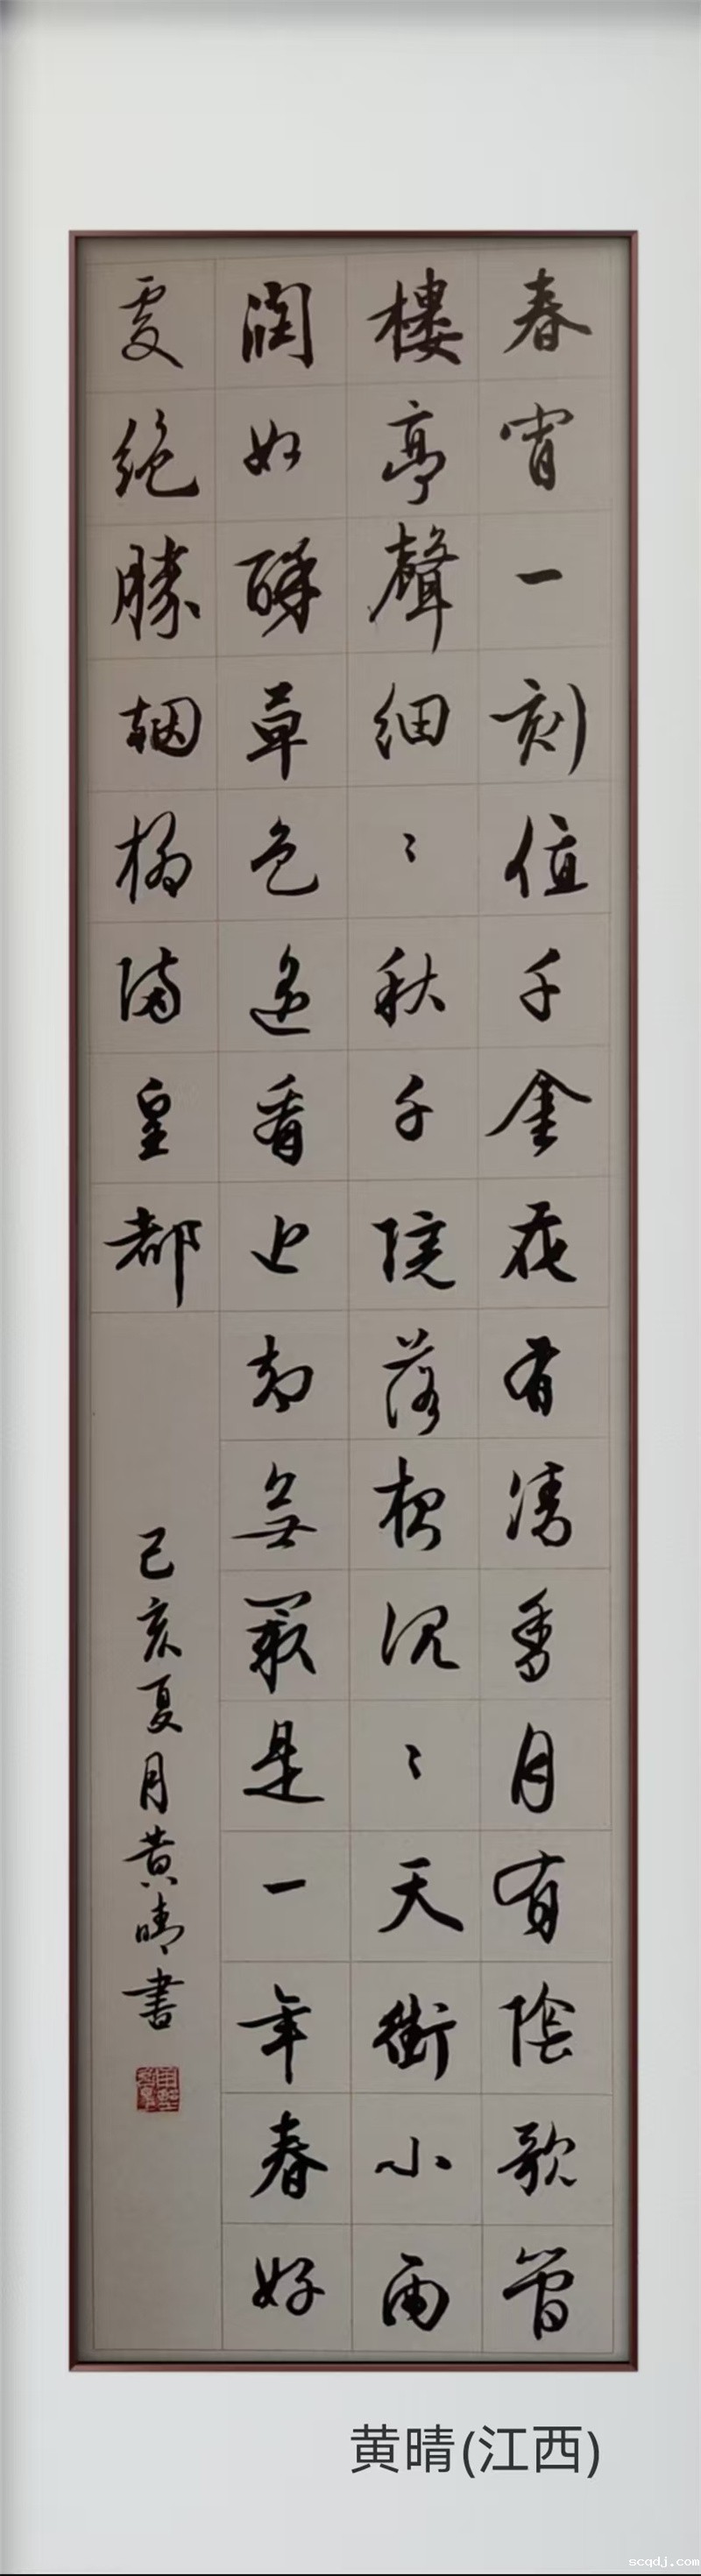 春宵一刻值千金花有清香月有陰歌管
樓亭聲細〻秋千院落夜沉〻天街小雨
潤如酥草色遙看近却無最是一年春好
處絕勝烟柳滿皇都
己亥夏月黄晴書
黄晴(江西)
scqdj.com